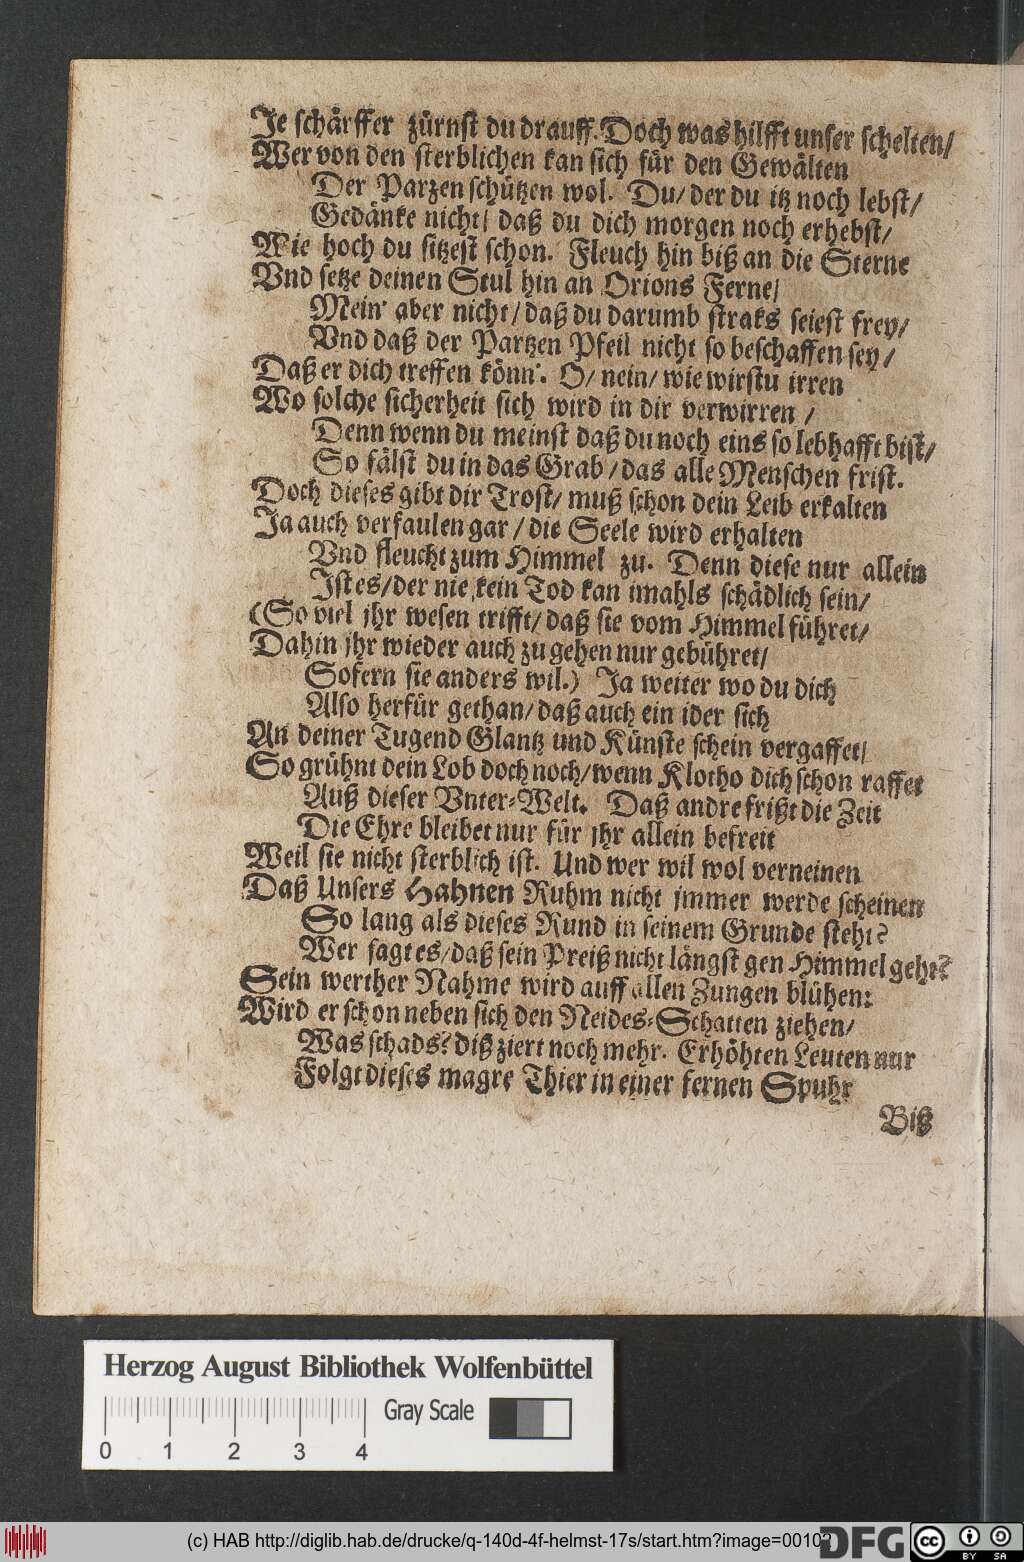 Je schärffer zürnst du drauff. Doch was hilfft unser schelten/
Wer von den sterblichen kan sich für den Gewälten
Der Parzen schützen wol. Du/ der du itz noch lebst/
Gedänke nicht/ daß du dich morgen noch erhebst/
Wie hoch du sitzest schon. Fleuch hin biß an die Sterne
Vnd setze deinen Stul hin an Orions Ferne/
Mein' aber nicht/ daß du darumb straks seiest frey/
Vnd daß der Partzen Pfeil nicht so beschaffen sey/
Daß er dich treffen könn'. O/ nein/ wie wirstu irren
Wo solche sicherheit sich wird in dir verwirren/
Denn wenn du meinst daß du noch eins so lebhafft bist/
So fälst du in das Grab/ das alle Menschen frist.
Doch dieses gibt dir Trost/ muß schon dein Leib erkalten
Ja auch verfaulen gar/ die Seele wird erhalten
Vnd fleucht zum Himmel zu. Denn diese nur allein
Ist es/ der nie kein Tod kan imahls schädlich sein/
(So viel jhr wesen trifft/ daß sie vom Himmel führet/
Dahin jhr wieder auch zu gehen nur gebühret/
Sofern sie anders wil.) Ja weiter wo du dich
Also herfür gethan/ daß auch ein ider sich
An deiner Tugend Glantz und Künste schein vergaffet/
So grühnt dein Lob doch noch/ wenn Klotho dich schon raffet
Auß dieser Vnter-Welt. Daß andre frißt die Zeit
Die Ehre bleibet nur für jhr allein befreit
Weil sie nicht sterblich ist. Und wer wil wol verneinen
Daß Unsers Hahnen Ruhm nicht immer werde scheinen
So lang als dieses Rund in seinem Grunde steht?
Wer sagt es/ daß sein Preiß nicht längst gen Himmel geht?
Sein werther Nahme wird auff allen Zungen blühen:
Wird er schon neben sich den Neides-Schatten ziehen/
Was schads? diß ziert noch mehr. Erhöhten Leuten nur
Folgt dieses magre Thier in einer fernen Spuhr
Biß
Herzog August Bibliothek Wolfenbüttel
Gray Scale
0 1 2 3 4
(c) HAB http://diglib.hab.de/drucke/q-140d-4f-helmst-17s/start.htm?image=00102
DFG
cc BY SA